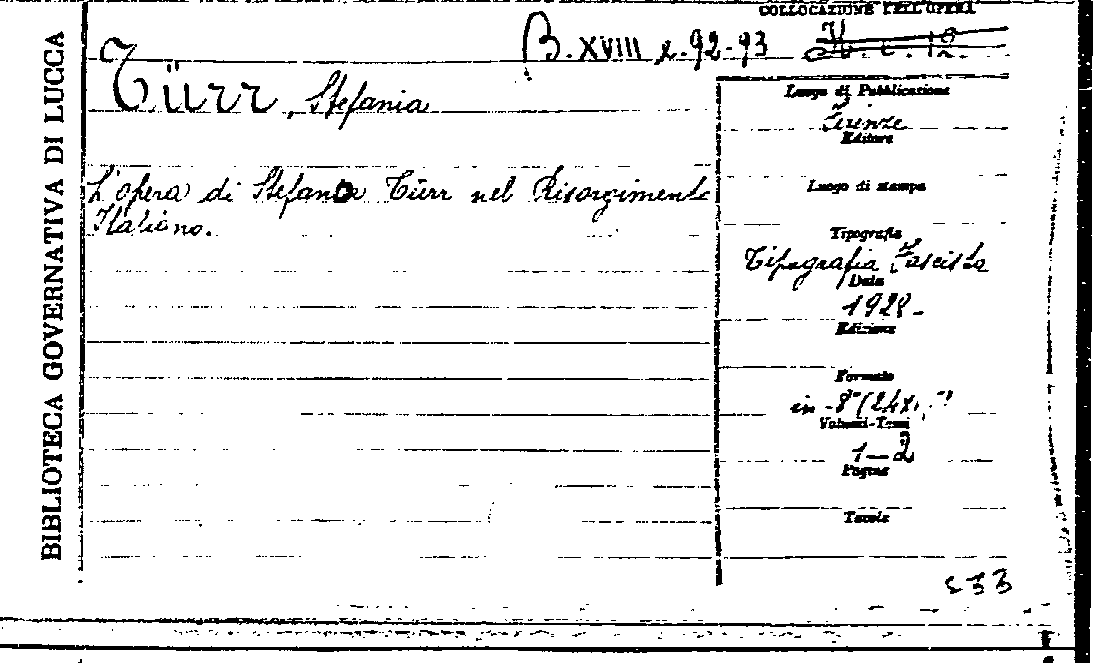 COLLOCAZIONE DELL'OPERA
B. XVIII x. 92-93
BIBLIOTECA GOVERNATIVA DI LUCCA
Türr, Stefania
L'opera di Stefano Türr nel Risorgimento
Italiano.
Luogo di Pubblicazione
Firenze
Editore
Luogo di stampa
Tipografia
Tipografia Fascista
Data
1928-
Edizione
Formato
in-8°
Volumi-Tomi
1-2
Pagine
Tavole